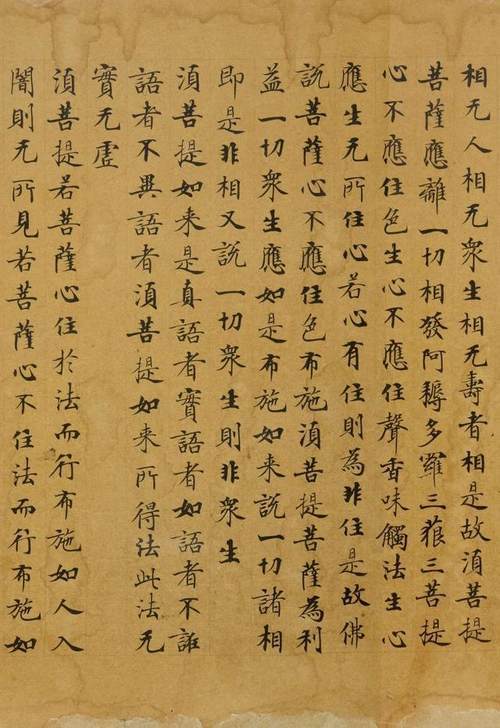 相无人相无衆生相无壽者相是故湏菩提
菩薩應離一切相發阿耨多羅三藐三菩提
心不應住色生心不應住聲香味觸法生心
應生无所住心若心有住則為非住是故佛
說菩薩心不應住色布施湏菩提菩薩為利
益一切衆生應如是布施如来說一切諸相
即是非相又說一切衆生則非衆生
湏菩提如来是真語者實語者如語者不誑
語者不異語者湏菩提如来所得法此法无
實无虛
湏菩提若菩薩心住於法而行布施如人入
闇則无所見若菩薩心不住法而行布施如